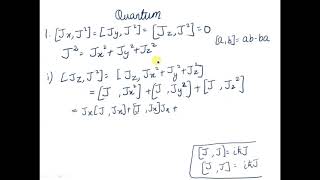 Quantum
1. [Jx, J²] = [Jy, J²] = [Jz, J²] = 0
[a,b] = ab-ba
J² = Jx² + Jy² + Jz²
i) [Jz, J²] = [Jz, Jx² + Jy² + Jz²]
= [J , Jx²] + [J , Jy²] + [J , Jz²]
= Jx[J , Jx] + [J , Jx]Jx +
[J , J] = iħJ
[J , J] = iħJ